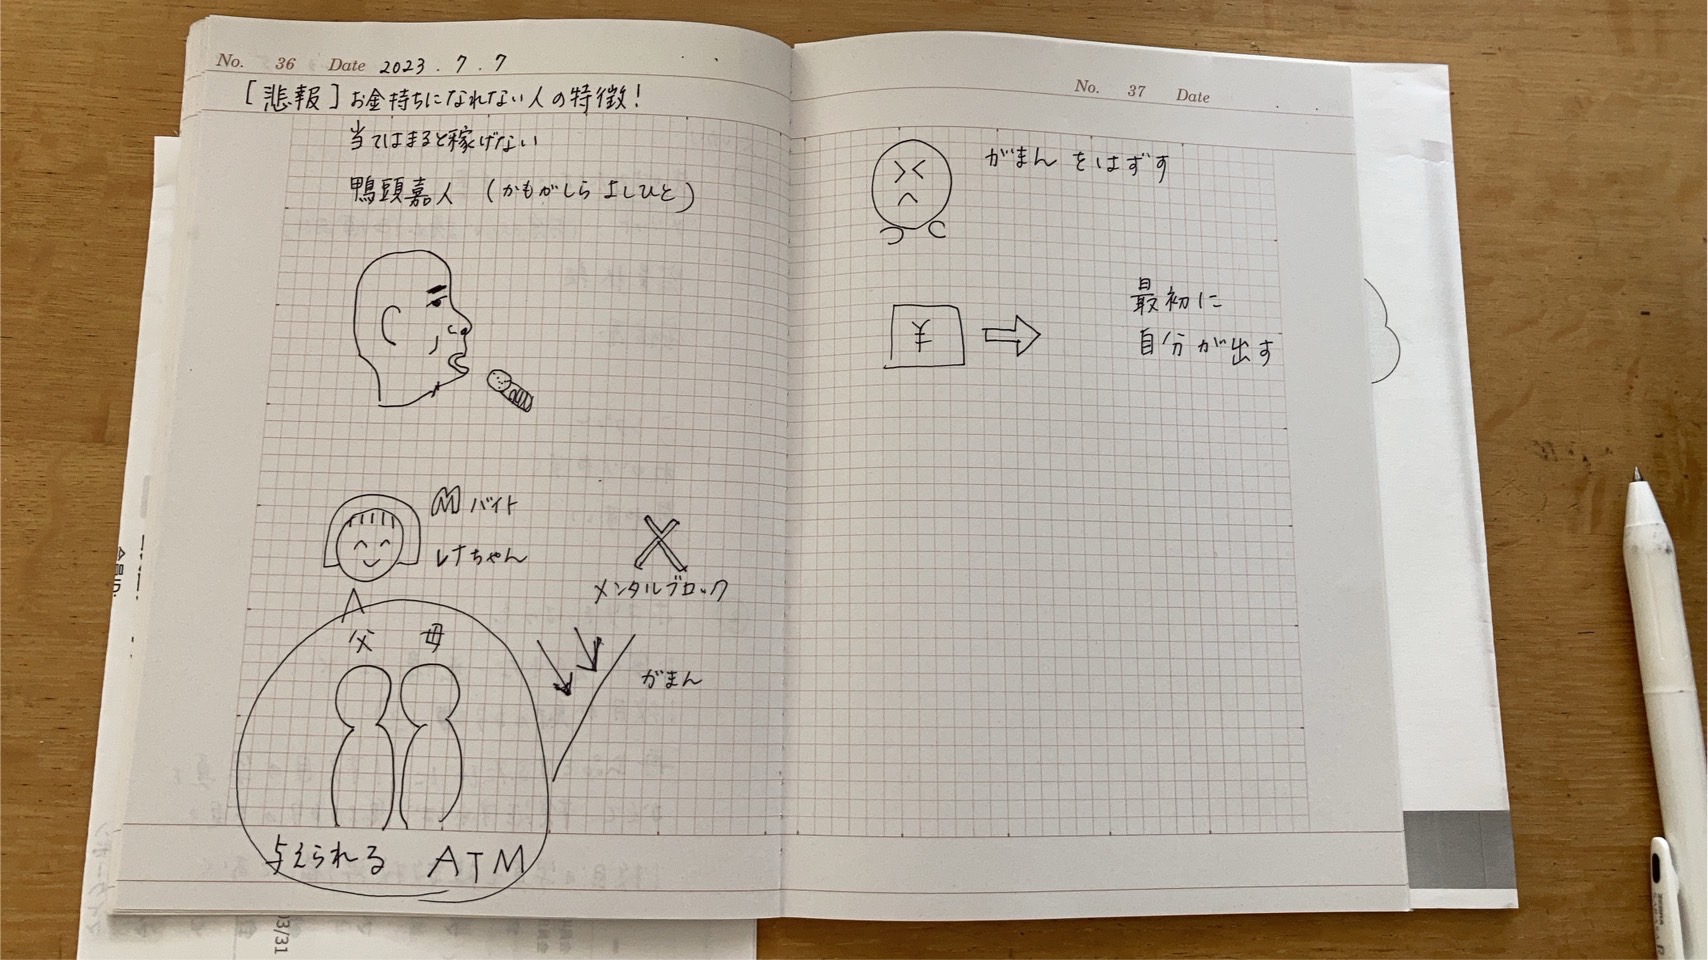 No. 36 Date 2023.7.7
[悲報]お金持ちになれない人の特徴!
当てはまると稼げない
鴨頭嘉人 (かもがしら よしひと)
M バイト
レナちゃん
メンタルブロック
父 母
がまん
与えられる ATM
No. 37 Date
がまん をはずす
¥
最初に
自分が出す
3/31